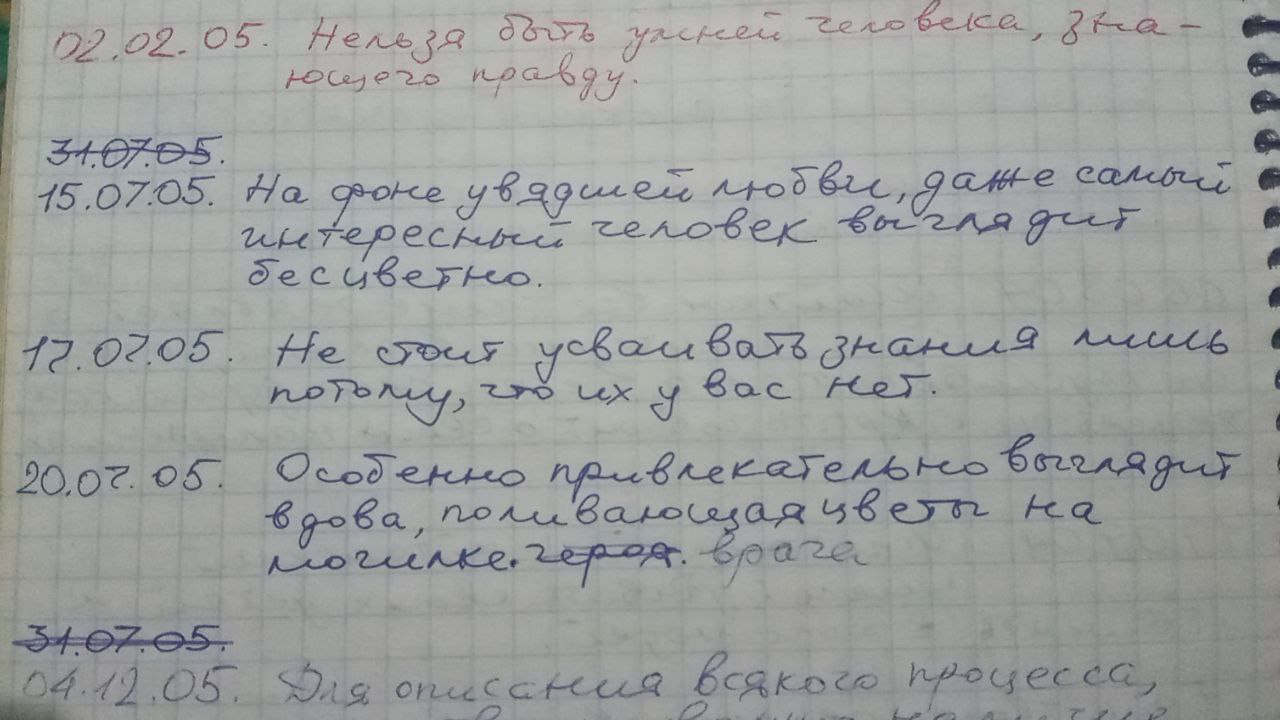 02.02.05. Нельзя быть умней человека, зна-
ющего правду.
31.07.05.
15.07.05. На фоне увядшей любви, даже самый
интересный человек выглядит
бесцветно.
17.07.05. Не стоит усваивать знания лишь
потому, что их у вас нет.
20.07.05. Особенно привлекательно выглядит
вдова, поливающая цветы на
могилке. героя. врага
31.07.05.
04.12.05. Для описания всякого процесса,